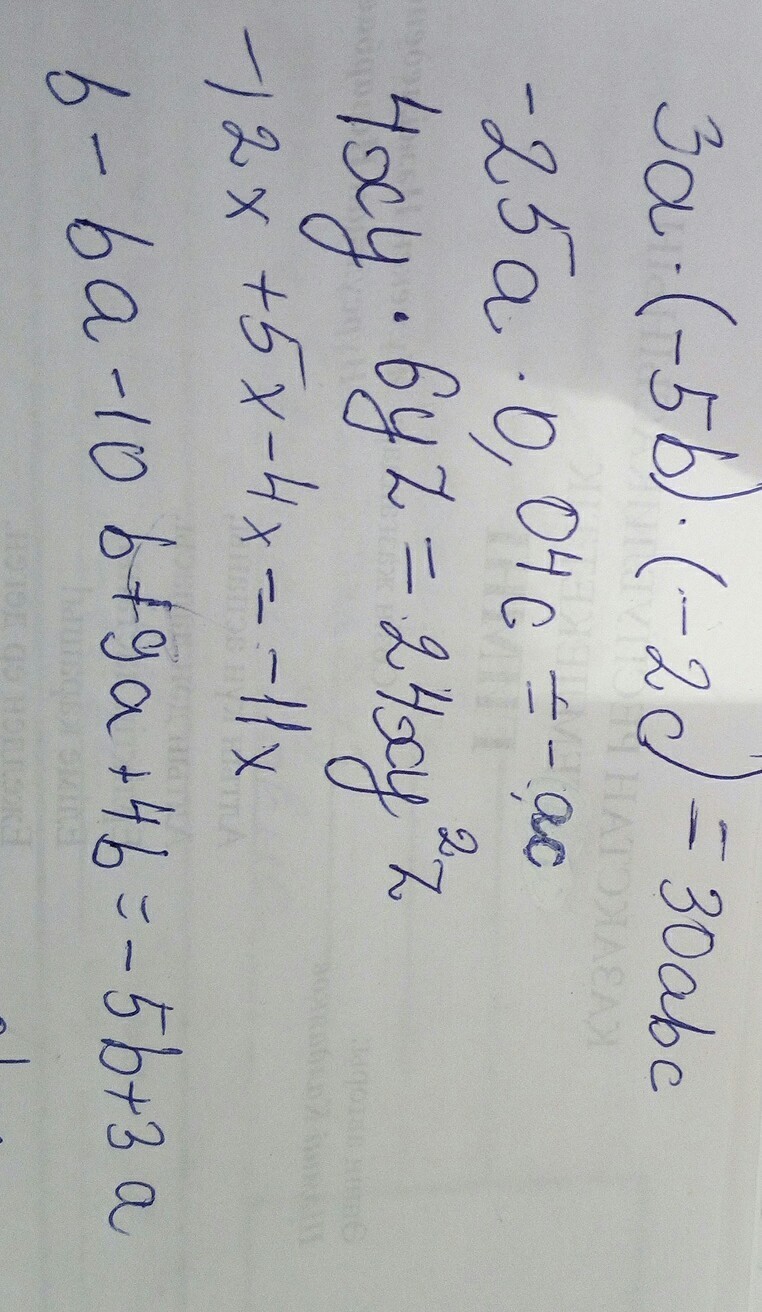 3a·(-5b)·(-2c) = 30abc
-25a·0,04c = -ac
4xy·6yz = 24xy²z
-12x+5x-4x=-11x
b-6a-10b+9a+4b=-5b+3a